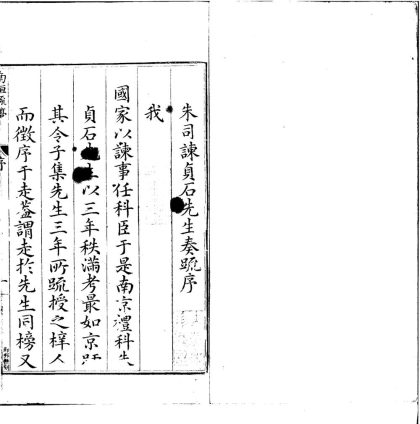 朱司諫貞石先生奏疏序
我
國家以諫事任科臣于是南京禮科
貞石先生以三年秩滿考最如京
其令子集先生三年所疏授之梓人
而徵序于走蓋謂走於先生同榜又
序
一